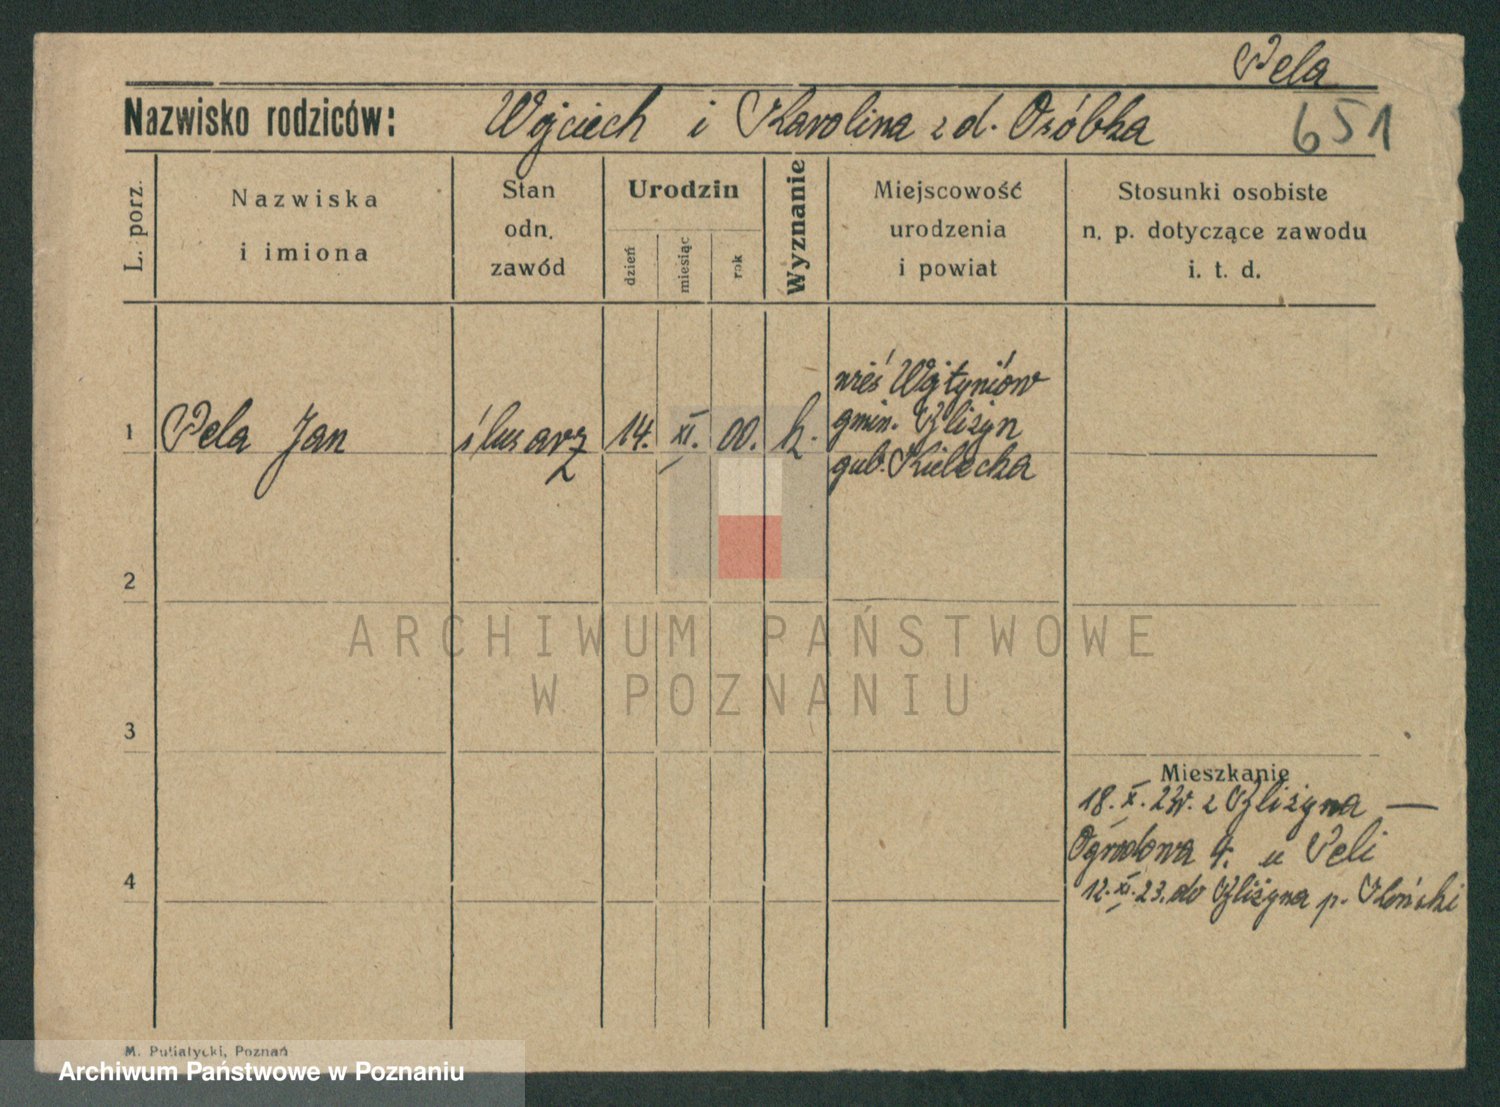 Pela
Nazwisko rodziców: Wojciech i Karolina z d. Osóbka
651
L. porz.
Nazwiska
i imiona
Stan
odn.
zawód
Urodzin
dzień
miesiąc
rok
Wyznanie
Miejscowość
urodzenia
i powiat
Stosunki osobiste
n. p. dotyczące zawodu
i. t. d.
1 Pela Jan ślusarz 14. XI. 00. k.
wieś Wojtyniów
gmin. Bliżyn
gub. Kielecka
2
3
4
ARCHIWUM PAŃSTWOWE
W POZNANIU
Mieszkanie
18. X. 22. z Bliżyna —
Ogrodowa 4. u Peli
12. XI. 23. do Bliżyna p. Koński
M. Putiatycki, Poznań
Archiwum Państwowe w Poznaniu